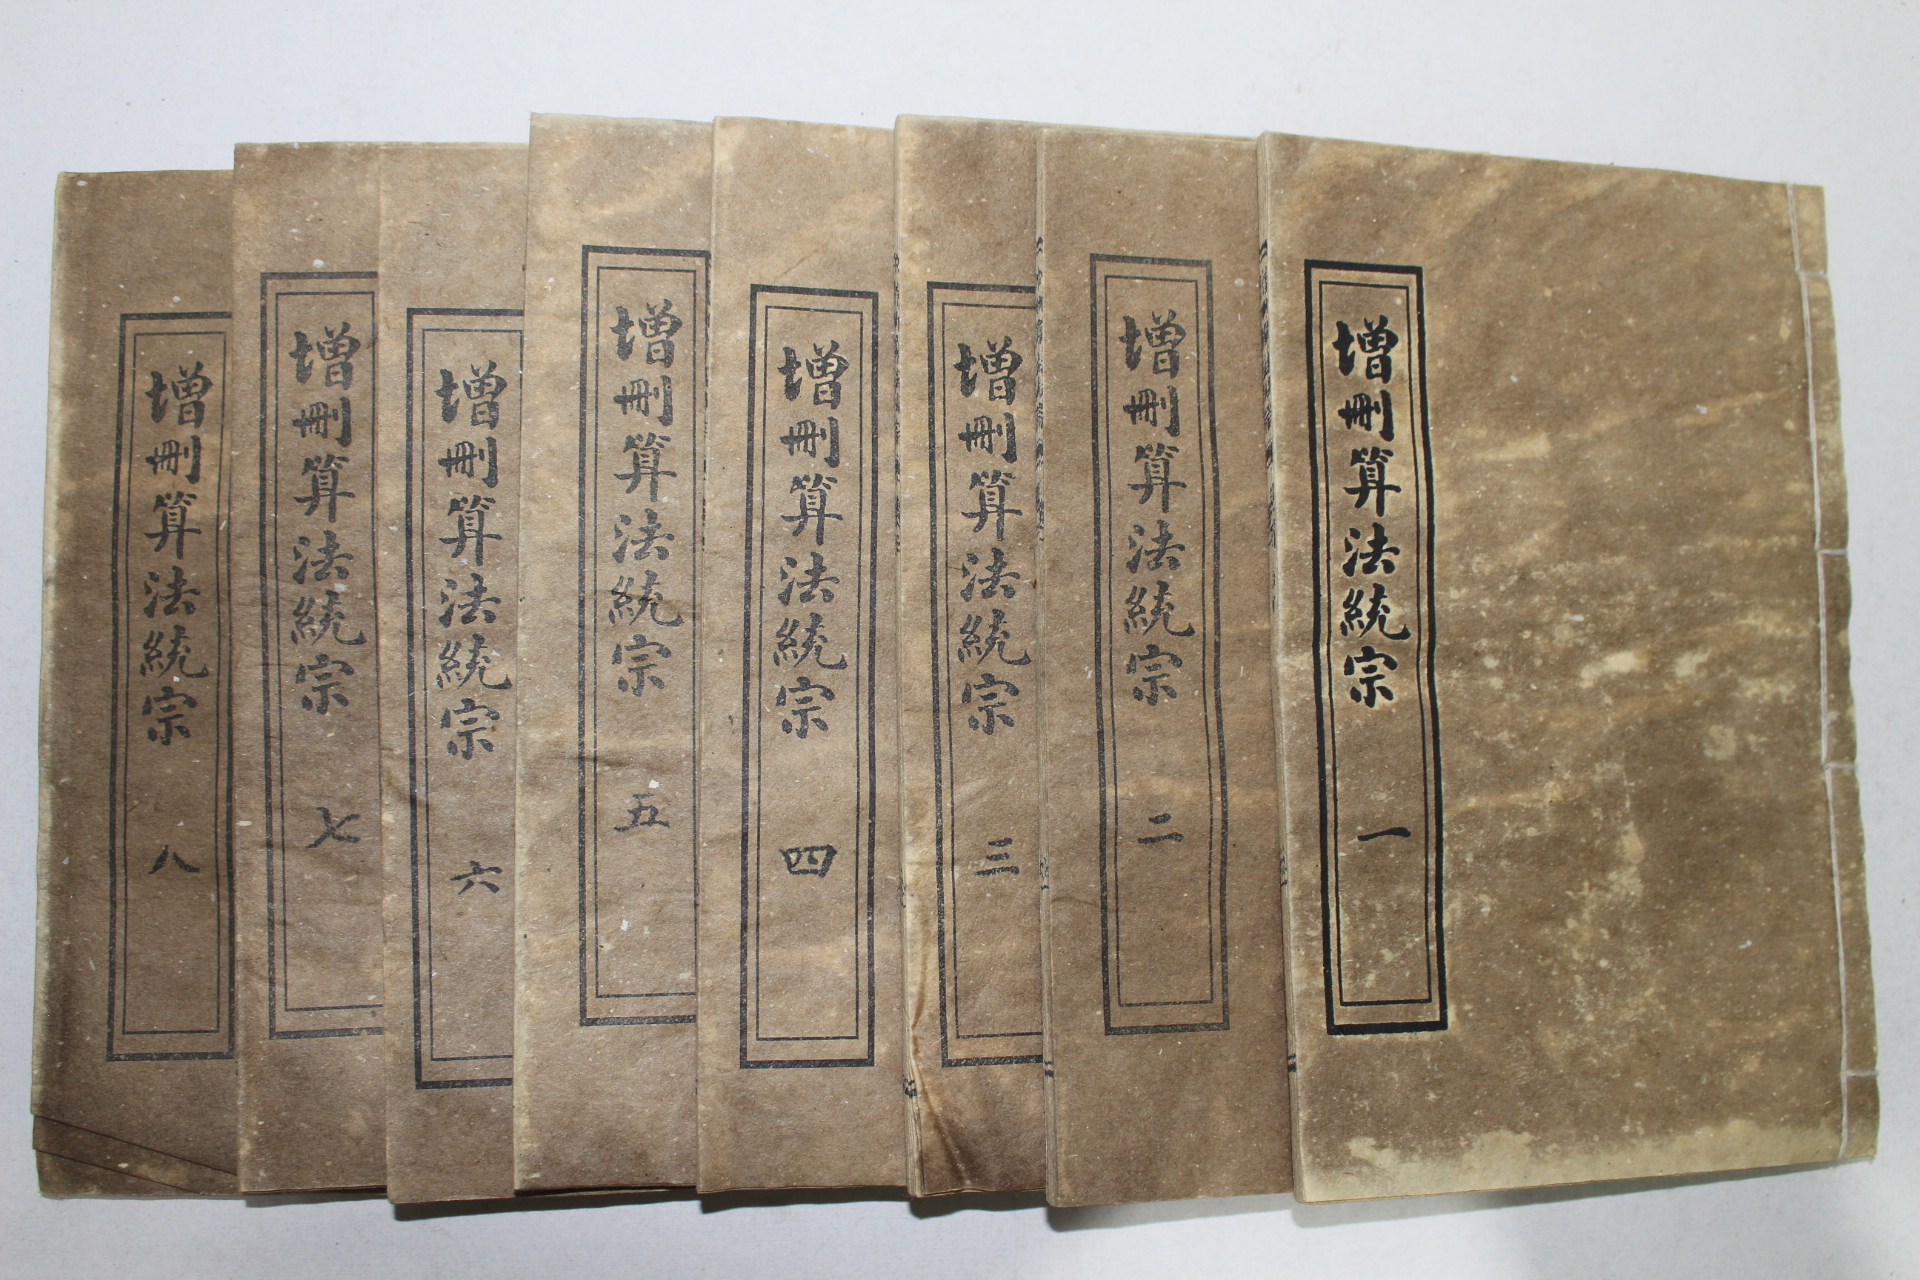 增刪算法統宗 一
增刪算法統宗 二
增刪算法統宗 三
增刪算法統宗 四
增刪算法統宗 五
增刪算法統宗 六
增刪算法統宗 七
增刪算法統宗 八